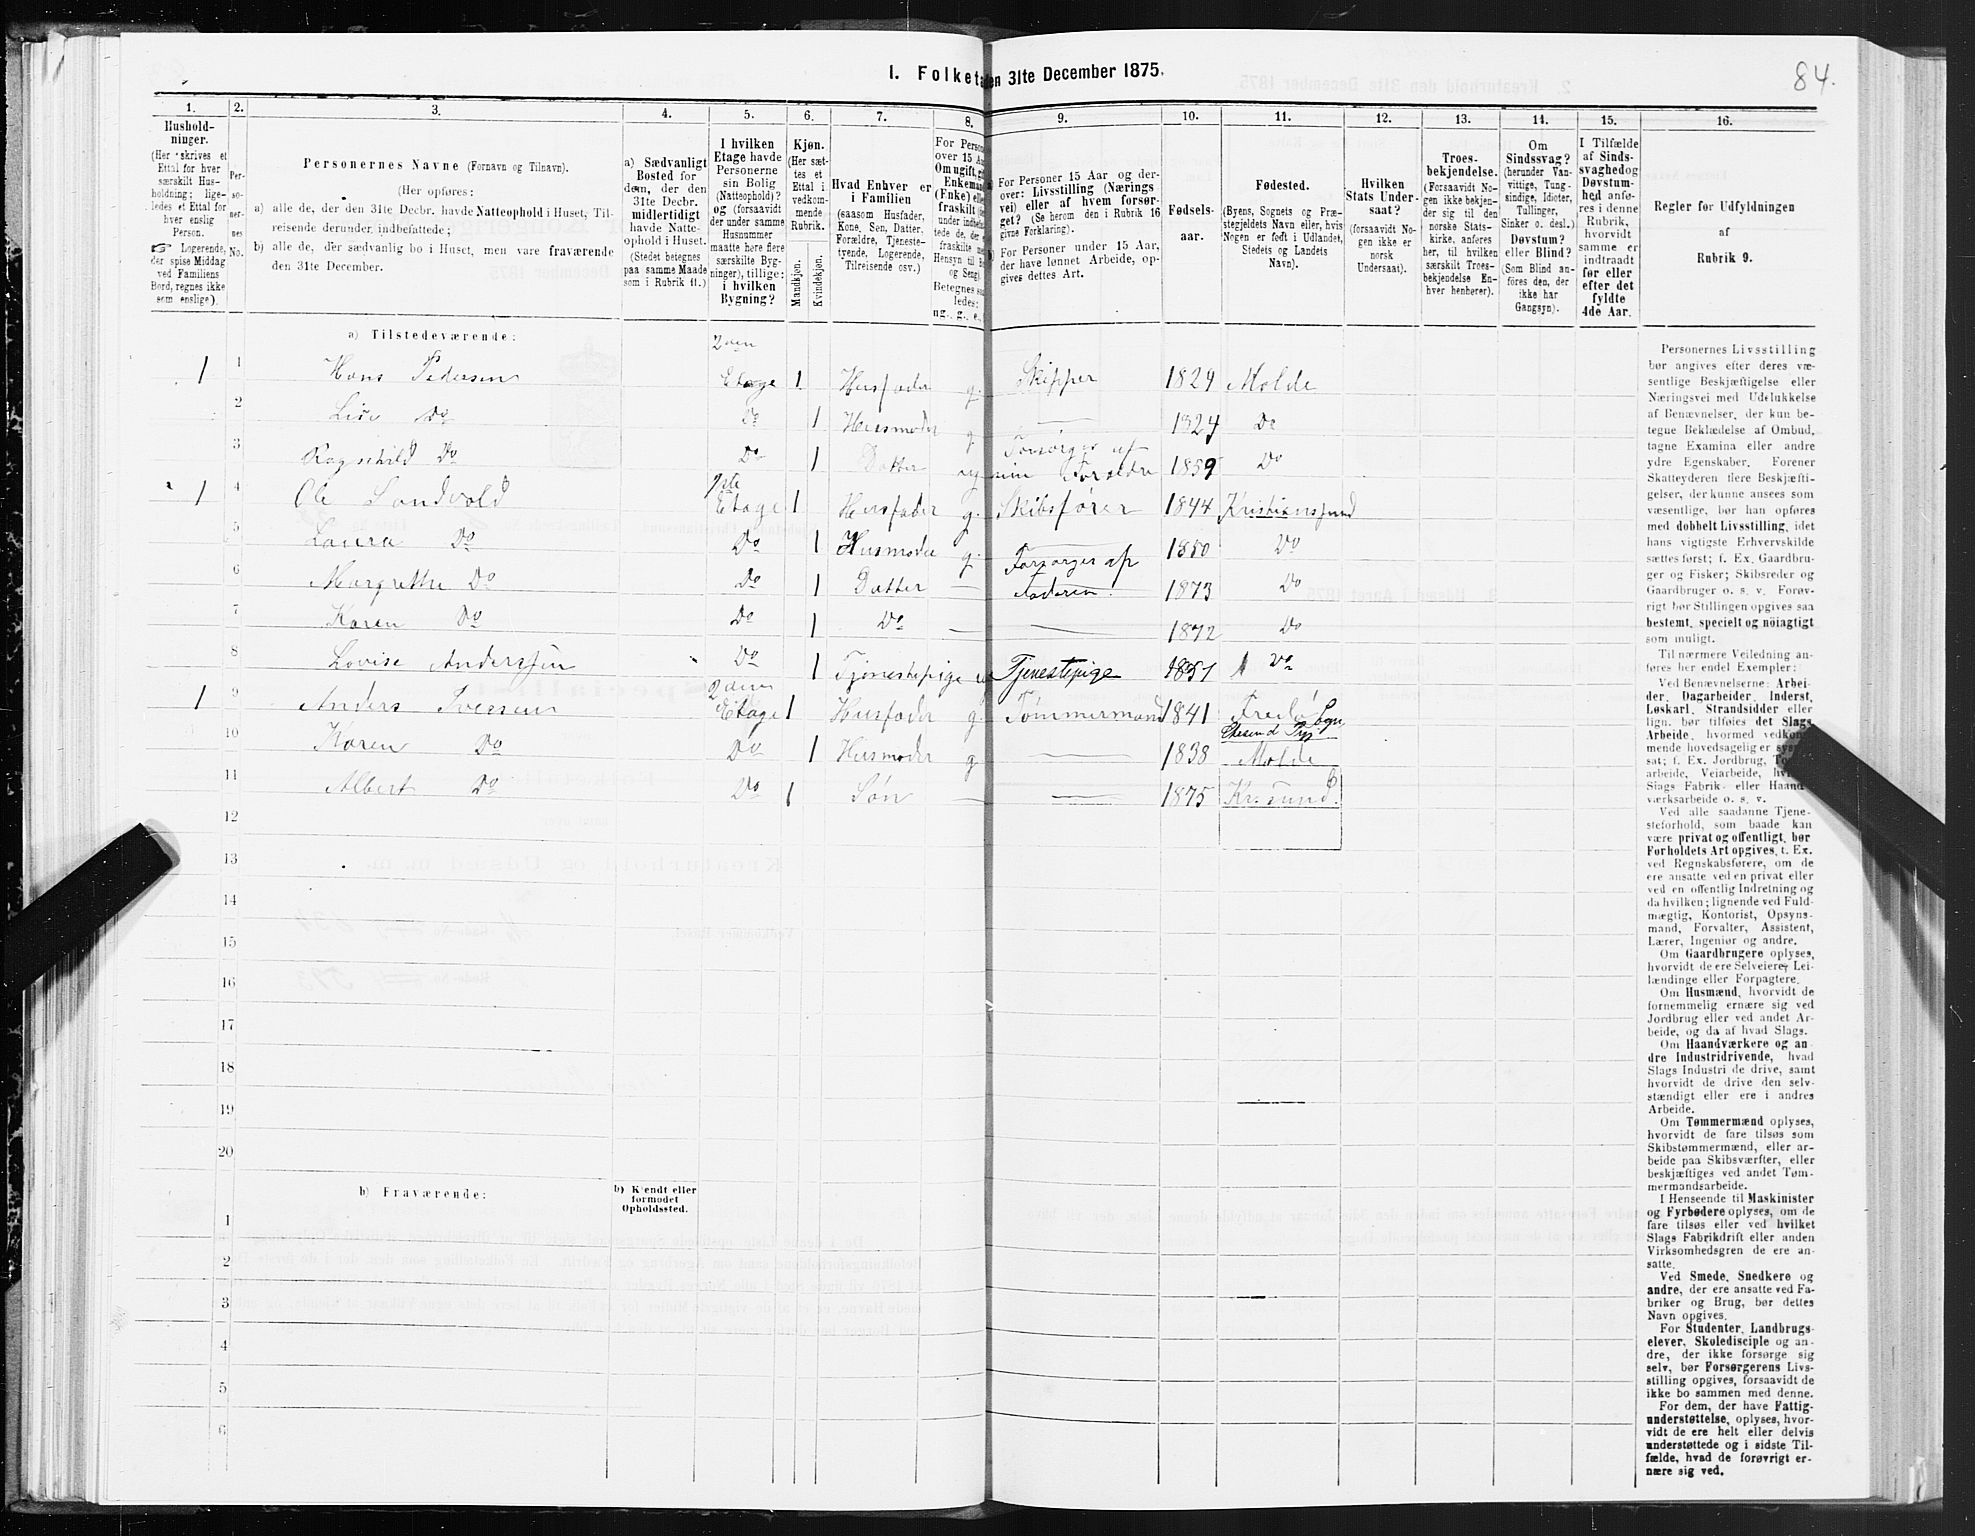 I. Folketæ en 31te December 1875.
84.
1. 2. 3. 4. 5. 6. 7. 8. 9. 10. 11. 12. 13. 14. 15. 16.
Hushold-
ninger.
(Her skrives et
Ettal for hver
særskilt Hus-
holdning; lige-
ledes et Ettal for
hver enslig
Person.
Logerende,
der spise Middag
ved Familiens
Bord, regnes ikke
som enslige).
Per-
so-
ner-
nes
No.
Personernes Navne (Fornavn og Tilnavn).
(Her opføres:
a) alle de, der den 31te Decbr. havde Natteophold i Huset, Til-
reisende derunder indbefattede;
b) alle de, der sædvanlig bo i Huset, men vare fraværende
den 31te December.
a) Sædvanligt
Bosted for
dem, der den
31te Decbr.
midlertidigt
havde Natte-
ophold i Huset.
(Stedet betegnes
paa samme Maade
som i Rubrik 11.)
I hvilken
Etage havde
Personerne
sin Bolig
(Natteophold)?
og (forsaavidt
der under samme
Husnummer
maatte høre flere
særskilte Byg-
ninger), tillige:
i hvilken
Bygning?
Kjøn.
(Her sæt-
tes et
Ettal i
vedkom-
mende
Rubrik.
Mandkjøn.
Kvindekjøn.
Hvad Enhver er
i Familien
(saasom Husfader,
Kone, Søn, Datter,
Forældre, Tjeneste-
tyende, Logerende,
Tilreisende osv.)
For Person
over 15 Aa
Om ugift, g
Enkeman
(Enke) elle
fraskilt
under indbe
tede de, de
fraskilte me
Hensyn til B
og Seng
Betegnes sa
ledes:
ug., g., e.,
For Personer 15 Aar og der-
over: Livsstilling (Nærings
vei) eller af hvem forsør-
get? (Se herom den i Rubrik 16
givne Forklaring).
b) For Personer under 15 Aar,
der have lønnet Arbeide, op-
gives dettes Art.
Fødsels-
aar.
Fødested.
(Byens, Sognets og Præ-
stegjeldets Navn eller, hvis
Nogen er født i Udlandet,
Stedets og Landets
Navn).
Hvilken
Stats Under-
saat?
(forsaavidt No-
gen ikke er
norsk
Undersaat).
Troes-
bekjendelse.
(Forsaavidt No-
gen ikke bekjen-
der sig til den
norske Stats-
kirke, anføres
her, til hvilken
særskilt Troes-
bekjendelse En-
hver henhører).
Om
Sindssvag?
(herunder Van-
vittige, Tung-
sindige, Idioter,
Tullinger,
Sinker o. desl.)
Døvstum?
eller Blind?
(Som Blind an-
føres den, der
ikke har
Gangsyn).
I Tilfælde
af Sinds-
svaghed og
Døvstum-
hed anfø-
res i denne
Rubrik,
hvorvidt
samme er
indtraadt
før eller
efter det
fyldte
4de Aar.
Regler for Udfyldningen
af
Rubrik 9.
a) Tilstedeværende:
2den
1 1 Hans Pedersen Etage 1 Husfader g. Skipper 1829 Molde
2 Lise Do Do 1 Husmoder g — 1824 Do
3 Ragnhild Do Do 1 Datter ug Forsørges af
sine Forældre 1859 Do
1ste
1 4 Ole Sandvold Etage 1 Husfader g. Skibsfører 1844 Kristianssund
5 Laura Do Do 1 Husmoder g. — 1850 Do
6 Margrethe Do Do 1 Datter — Forsørges af
Faderen. 1873 Do
7 Karen Do Do 1 Do — — 1872 Do
8 Lovise Anderssen Do 1 Tjenestepige Tjenestepige 1851 Do
2den
1 9 Anders Iverssen Etage 1 Husfader g. Tømmermand 1841 Fredø Sogn
10 Karen Do Do 1 Husmoder g — 1838 Molde
11 Albert Do Do 1 Søn — — 1875 Kr.sund.
12
13
14
15
16
17
18
19
20
b) Fraværende:
b) Kjendt eller
formodet
Opholdssted.
1
2
3
4
5
6
Personernes Livsstilling
bør angives efter deres væ-
sentlige Beskjæftigelse eller
Næringsvei med Udelukkelse
af Benævnelser, der kun be-
tegne Beklædelse af Ombud,
tagne Examina eller andre
ydre Egenskaber. Forener
Skatteyderen flere Beskjæfti-
gelser, der kunne ansees som
væsentlige, bør han opføres
med dobbelt Livsstilling, idet
hans vigtigste Erhvervskilde
sættes først; f. Ex. Gaardbru-
ger og Fisker; Skibsreder og
Gaardbruger o. s. v. Forøv-
rigt bør Stillingen opgives saa
bestemt, specielt og nöiagtigt
som muligt.
Til nærmere Veiledning an-
føres her endel Exempler:
Ved Benævnelserne: Arbei-
der, Dagarbeider, Inderst,
Løskarl, Strandsidder eller
lign. bør tilføies det Slags
Arbeide, hvormed vedkom-
mende hovedsagelig er sys
sat; f. Ex. Jordbrug, To
arbeide, Veiarbeide, hvi
Slags Fabrik- eller Haand
værksarbeide o. s. v.
Ved alle saadanne Tjene-
steforhold, som baade kan
være privat og offentligt, bør
Forholdets Art opgives, t. Ex.
ved Regnskabsførere, om de
ere ansatte ved en privat eller
ved en offentlig Indretning og
da hvilken; lignende ved Fuld-
mægtig, Kontorist, Opsyns-
mand, Forvalter, Assistent,
Lærer, Ingeniør og andre.
Om Gaardbrugere oplyses,
hvorvidt de ere Selveiere, Lei-
lændinge eller Forpagtere.
Om Husmænd, hvorvidt de
fornemmelig ernære sig ved
Jordbrug eller ved andet Ar-
beide, og da af hvad Slags.
Om Haandværkere og an-
dre Industridrivende, hvad
Slags Industri de drive, samt
hvorvidt de drive den selv-
stændigt eller ere i andres
Arbeide.
Om Tømmermænd oplyses,
hvorvidt de fare tilsøs som
Skibstømmermænd, eller ar-
beide paa Skibsværfter, eller
beskjæftiges ved andet Tøm-
mermandsarbeide.
I Henseende til Maskinister
og Fyrbødere oplyses, om de
fare tilsøs eller ved hvilket
Slags Fabrikdrift eller anden
Virksomhedsgren de ere an-
satte.
Ved Smede, Snedkere og
andre, der ere ansatte ved Fa-
briker og Brug, bør dettes
Navn opgives.
For Studenter, Landbrugs-
elever, Skoledisciple og an-
dre, der ikke forsørge sig
selv, bør Forsørgerens Livs-
stilling opgives, forsaavidt de
ikke bo sammen med denne.
For dem, der have Fattig-
understøttelse, oplyses, hvor-
vidt de ere helt eller delvis
understøttede og i sidste Til-
fælde, hvad de forøvrigt er-
nære sig ved.